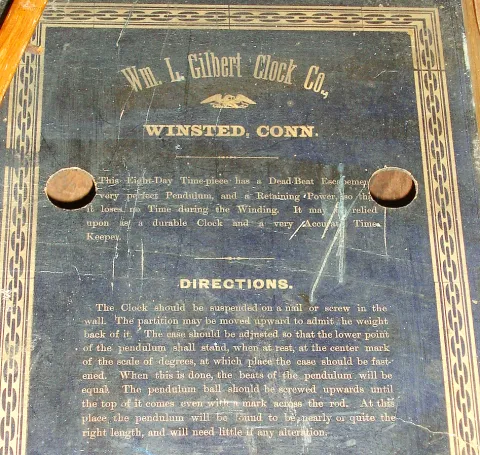 Wm. L. Gilbert Clock Co.,
WINSTED, CONN.
This Eight-Day Time-piece has a Dead-Beat Escapement
very perfect Pendulum, and a Retaining Power, so that
it loses no Time during the Winding. It may be relied
upon as a durable Clock and a very Accurate Time
Keeper.
DIRECTIONS.
The Clock should be suspended on a nail or screw in the
wall. The partition may be moved upward to admit the weight
back of it. The case should be adjusted so that the lower point
of the pendulum shall stand, when at rest, at the center mark
of the scale of degrees, at which place the case should be fast-
ened. When this is done, the beats of the pendulum will be
equal. The pendulum ball should be screwed upwards until
the top of it comes even with a mark across the rod. At this
place the pendulum will be found to be nearly or quite the
right length, and will need little if any alteration.